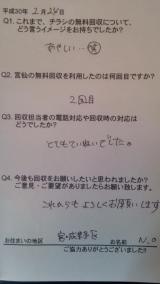 平成30年 2月24日
Q1.これまで、チラシの無料回収について、
どう言うイメージをお持ちでしたか?
あやしい…
Q2.宮仙の無料回収を利用したのは何回目ですか?
2回目
Q3.回収担当者の電話対応や回収時の対応は
どうでしたか?
とてもていねいでした。
Q4.今後も回収をお願いしたいと思われましたか?
ご意見・ご要望がありましたらお願い致します。
これからもよろしくお願いします
お住まいの地区
お名前 N.O
ご協力ありがとうございました!